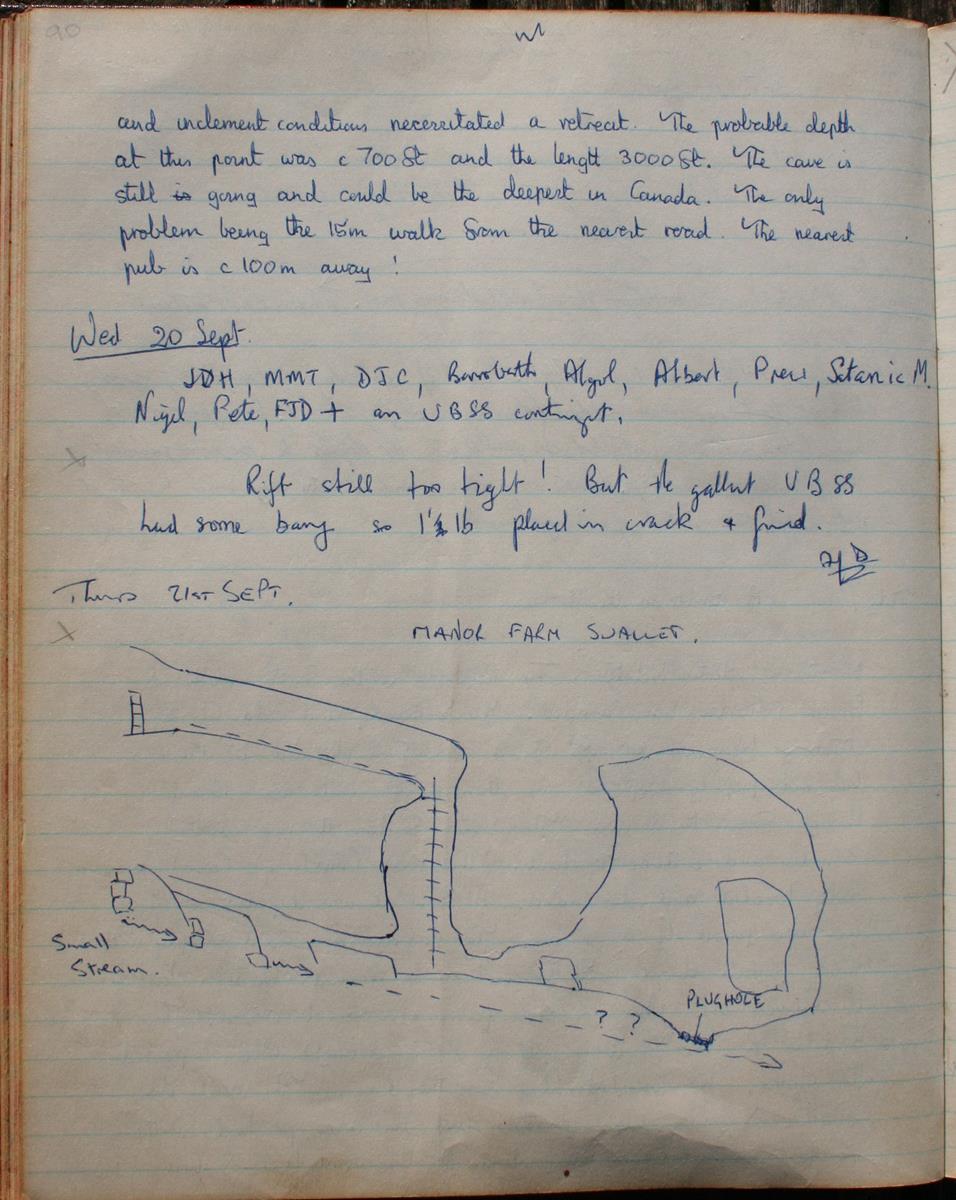 90
and inclement conditions necessitated a retreat. The probable depth
at this point was c 700ft and the lengtt 3000ft. The cave is
still is going and could be the deepest in Canada. The only
problem being the 15m walk from the nearest road. The nearest
pub is c 100m away !
Wed 20 Sept.
JDH, MMT, DJC, Algol, Albert, Prew, Satanic M.
Nigel, Pete, FJD + an UBSS contingt.
Rift still too tight! But the gallant UBSS
had some bang so lb placed in crack & fired.
Thurs 21ST SEPT.
MANOR FARM SWALLET.
Small
Stream.
PLUGHOLE
? ?